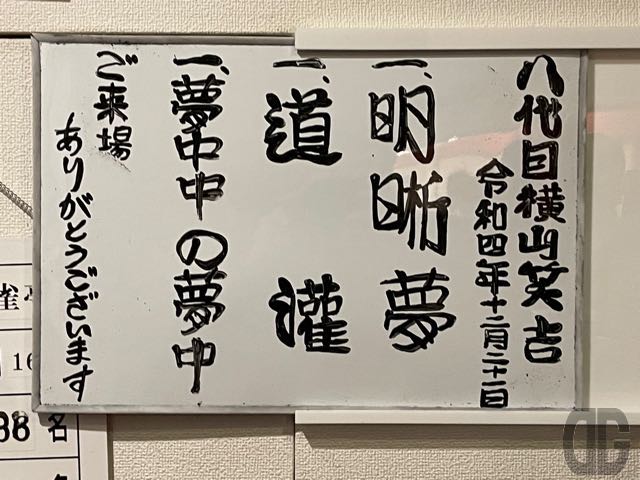 八代目横山笑吉
令和四年十二月二十一日
一、明晰夢
一、道灌
一、夢中中の夢中
ご来場
ありがとうございます
雀
16
38名
DG